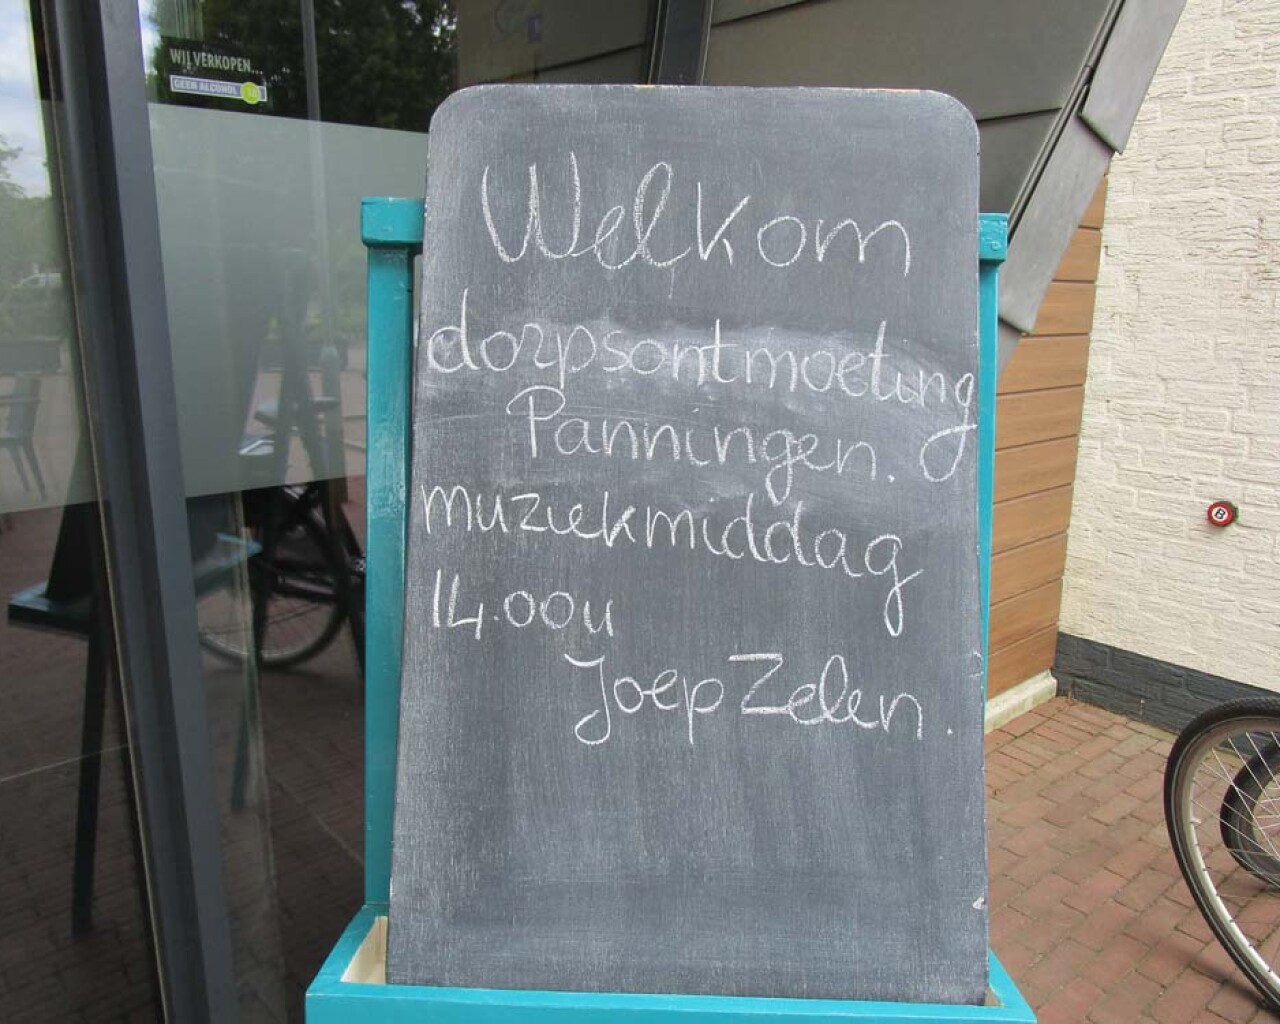 WIJ VERKOPEN...
GEEN ALCOHOL
Welkom
dorpsontmoeting
Panningen.
muziekmiddag
14.00u
Joep Zelen.
B